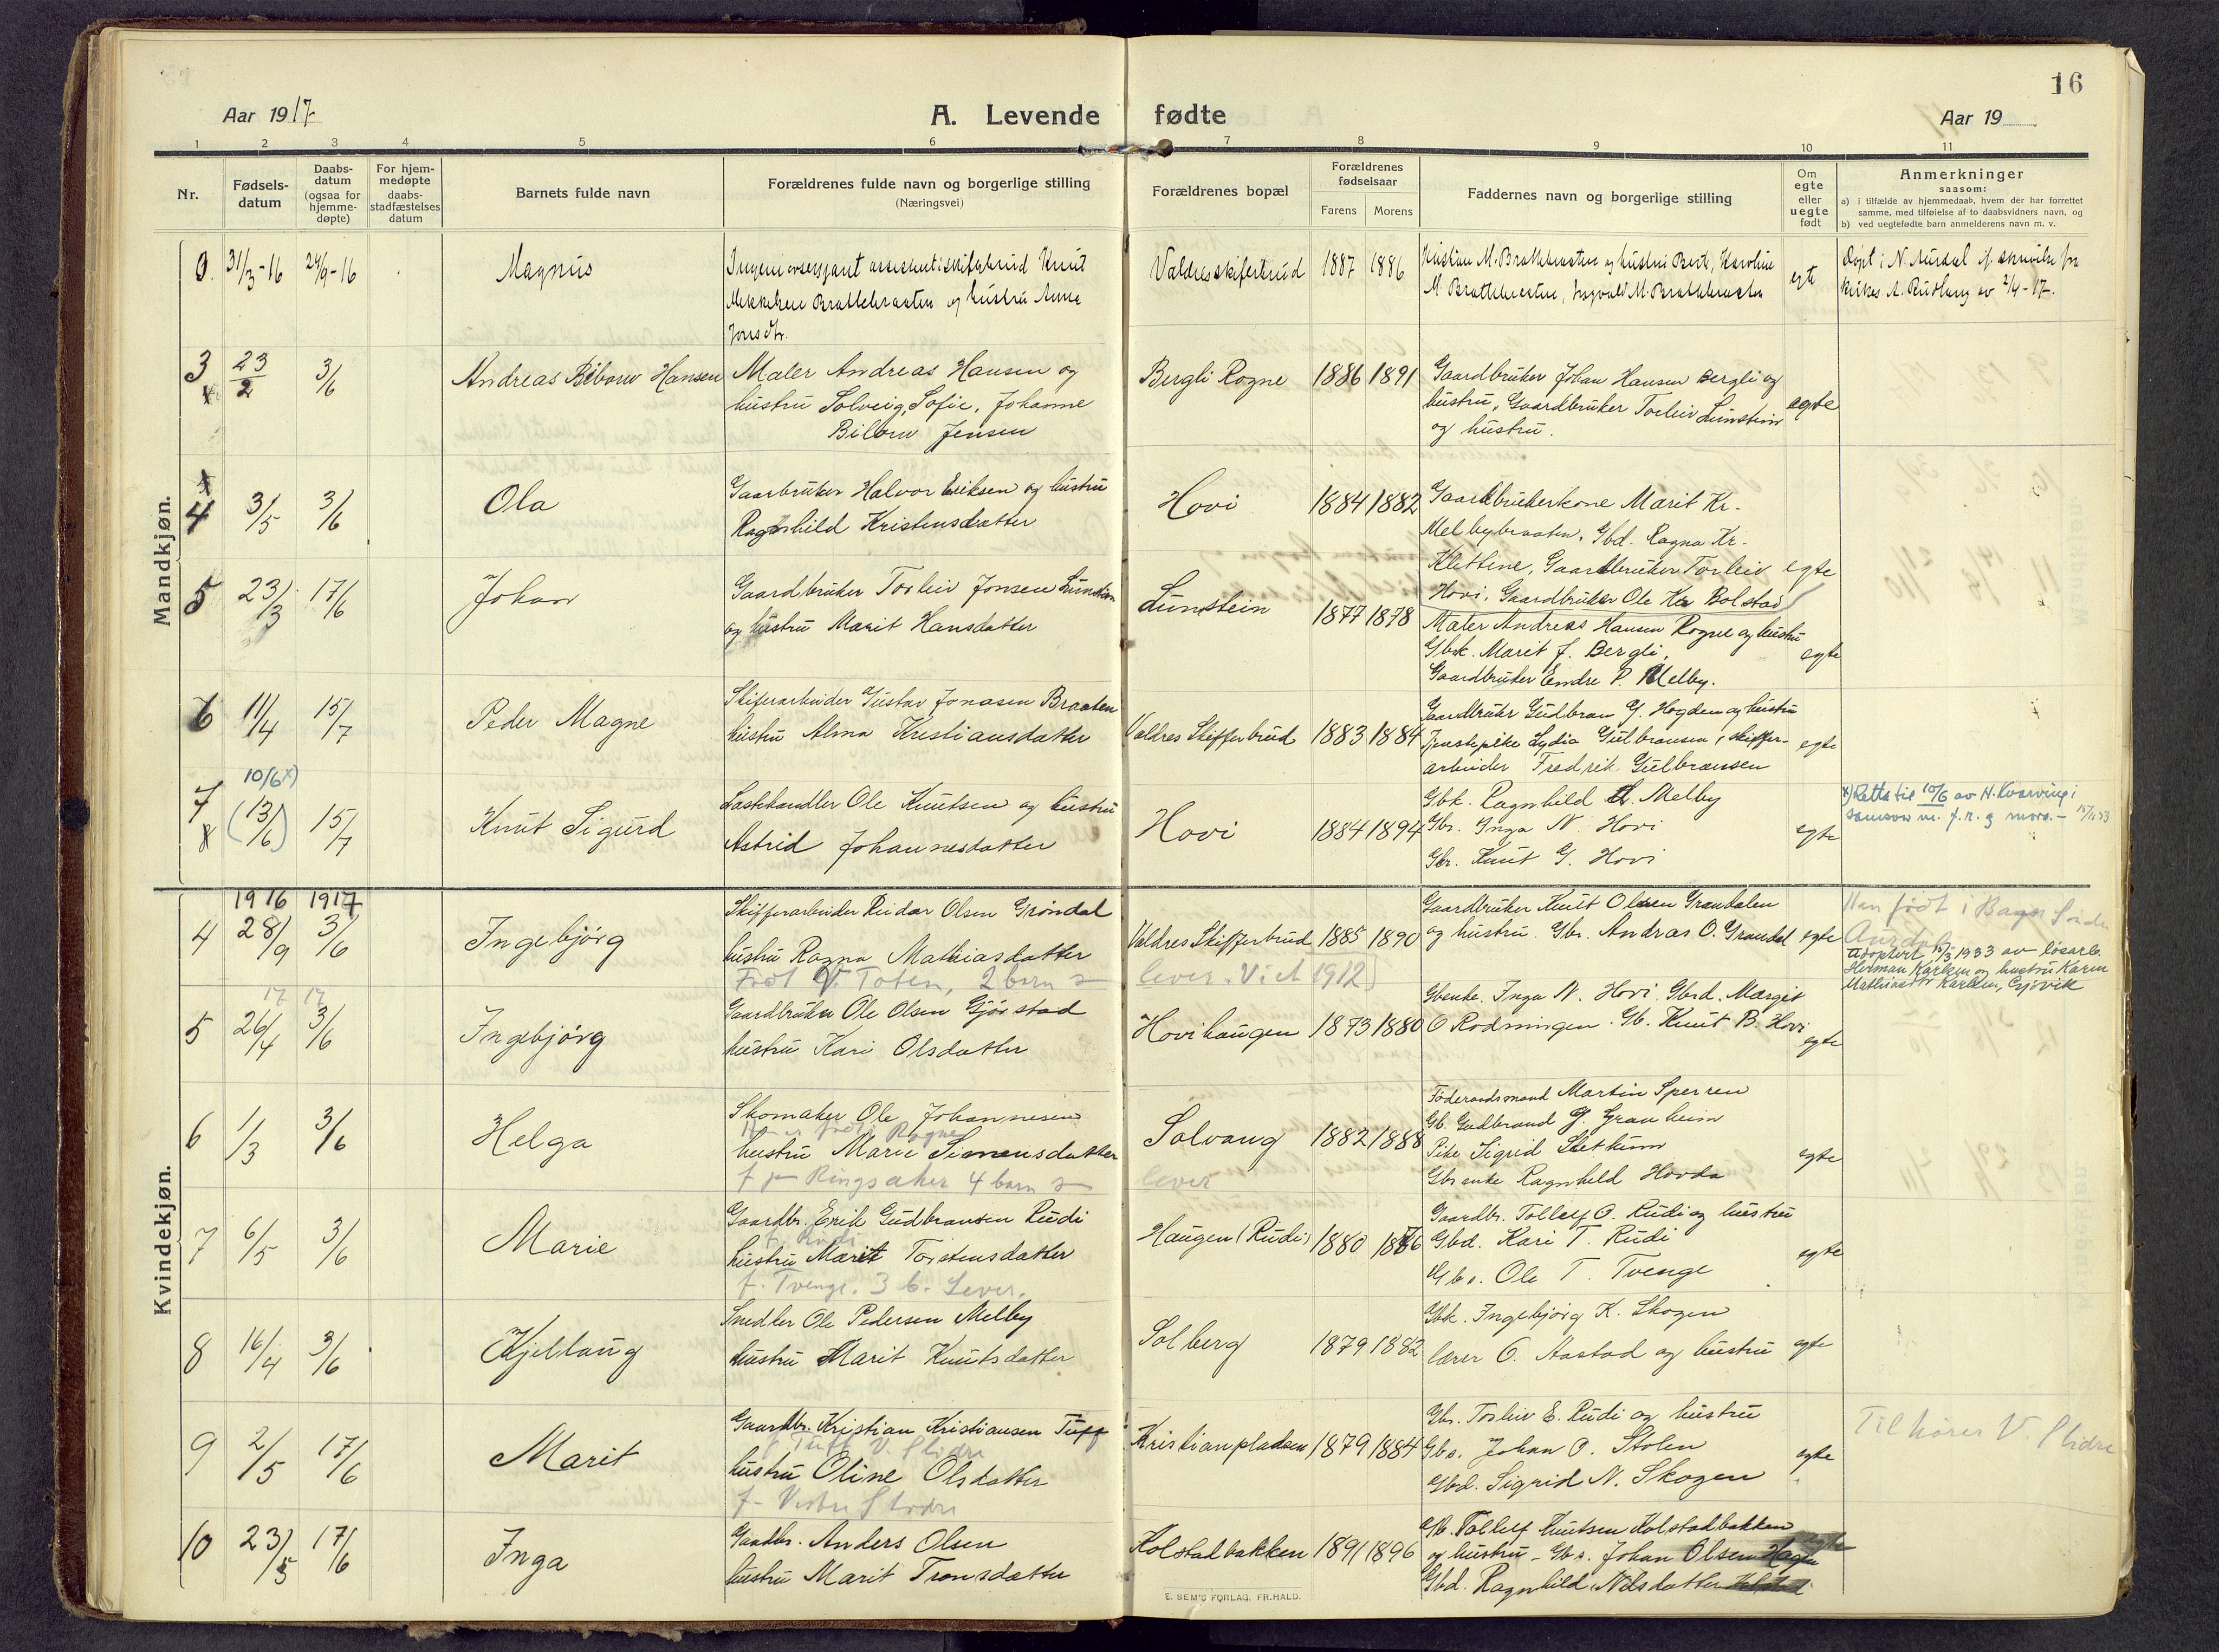 16
Aar 1917
A. Levende fødte
Aar 19
1 2 3 4 5 6 7 8 9 10 11
Nr.
Fødsels-
datum
Daabs-
datum
(ogsaa for
hjemme-
døpte)
For hjem-
medøpte
daabs-
stadfæstelses
datum
Barnets fulde navn
Forældrenes fulde navn og borgerlige stilling
(Næringsvei)
Forældrenes bopæl
Forældrenes
fødselsaar
Farens Morens
Faddernes navn og borgerlige stilling
Om
egte
eller
uegte
født
Anmerkninger
saasom:
a) i tilfælde av hjemmedaab, hvem der har forrettet
samme, med tilføielse af to daabsvidners navn, og
b) ved uegtefødte barn anmelderens navn m. v.
Mandkjøn.
0. 31/3-16 24/9-16 Magnus
Knut
Brattebraaten og hustru Anna
Jonsdtr.
Valdres skiferbrud 1887 1886
Kristian M. Brattebraaten og hustru Berte, Karoline
M. Brattebraaten, Ingvald M. Brattebraaten
egte
Døpt i N. Aurdal
av 2/4-17.
3 x 23/2 3/6 Andreas Biborw Hansen
Maler Andreas Hansen og
hustru Solveig, Sofie, Johanne
Jensen
Bergli Rogne 1886 1891
Gaardbruker Johan Hansen Bergli og
hustru, Gaardbruker Torleiv Lunstein
og hustru.
egte
x
4 3/5 3/6 Ola
Gaarbruker Halvor Eriksen og hustru
Ragnhild Kristensdatter
Hovi 1884 1882
Gaardbrukerkone Marit Kr.
Melbybraaten. Gbd. Ragna Kr.
Klettene, Gaardbruker Torleiv
Hovi, Gaardbruker Ole Kr Bolstad
egte
5 23/3 17/6 Johan
Gaardbruker Torleiv Jonsen Lunstein
og hustru Marit Hansdatter
Lunstein 1877 1878
Maler Andreas Hansen Rogne og hustru
Gbk. Marit J. Bergli,
Gaardbruker Endre P. Melby.
egte
6 11/4 15/7 Peder Magne
Skiferarbeider Gustav Jonasen Braaten
hustru Alma Kristiansdatter
Valdres Skifferbrud 1883 1884
Gaardbruker Gudbran G. Hegden og hustru
Tjenestepike Lydia Gulbransen, skiffer-
arbeider Fredrik Gulbransen
egte
10/6 x)
7 x (13/6) 15/7 Knut Sigurd
Lastehandler Ole Knutsen og hustru
Astrid Johannesdatter
Hovi 1884 1894
Gbk. Ragnhild Melby
Gbr. Inga N. Hovi
Gbr. Knut G. Hovi
egte
x) Rettet til 10/6 av H. Kvarving i
samsvar m. f. r. og mora. -
Kvindekjøn.
1916 1917
4 28/9 3/6 Ingebjørg
Skifferarbeider Reidar Olsen Grøndal
hustru Ragna Mathiasdatter
Født V. Toten, 2 barn
lever. Viet 1912
Valdres Skifferbrud 1885 1890
Gaardbruker Knut Olsen Grøndalen
og hustru. Gbr. Andras O. Grøndal
egte
født i Bagn Søndre
Aurdal
Adoptert 15/3 1933 av løsarb.
Herman Karlsen og hustru Karen
Mathiasdtr Karlsen, Gjøvik
17 17
5 26/4 3/6 Ingebjørg
Gaardbruker Ole Olsen Gjørstad
hustru Kari Olsdatter
Hovihaugen 1873 1880
Gbenke. Inga N. Hovi. Gbrd. Margit
O Rodningen. Gb. Knut B. Hovi
egte
6 1/3 3/6 Helga
Skomaker Ole Johannesen
født i Rogne
hustru Marie Simensdatter
f. Ringsaker 4 barn
lever
Solvang 1882 1888
Føderaadsmand Martin Sperren
Gb. Gudbrand G. Grønheim
Pike Sigrid Slettum
Gbr enke Ragnhild Hovda
egte
7 6/5 3/6 Marie
Gaardbr. Erik Gudbransen Rudi
f. Rudi
hustru Marit Torstensdatter
f. Tvenge. 3 b. Lever.
Haugen (Rudi) 1880 1886
Gaardbr. Tollef O. Rudi og hustru
Gbd. Kari T. Rudi
Gbs. Ole T. Tvenge
egte
8 16/4 3/6 Kjellaug
Snedker Ole Pedersen Melby
hustru Marit Knutsdatter
Solberg 1879 1882
Gbk. Ingebjørg K. Skogen
lærer O. Aastad og hustru
egte
9 2/5 17/6 Marit
Gaardbr. Kristian Kristiansen Tuff
f. Tuff V. Slidre
hustru Oline Olsdatter
f. Vestre Slidre
Kristianpladsen 1879 1884
Gbr. Torleiv E. Rudi og hustru
Gbs. Johan O. Stolen
Gbd. Sigrid N. Skogen
egte
Tilhører V. Slidre
10 23/5 17/6 Inga
Gaardbr. Anders Olsen
hustru Marit Tronsdatter
Kolstadbakken 1891 1896
Gb. Tollef Knutsen Kolstadbakken
og hustru - Gbs. Johan Olsen Hagen
Gbd. Ragnhild Nilsdatter
egte
E. SEM'S FORLAG, FR.HALD.